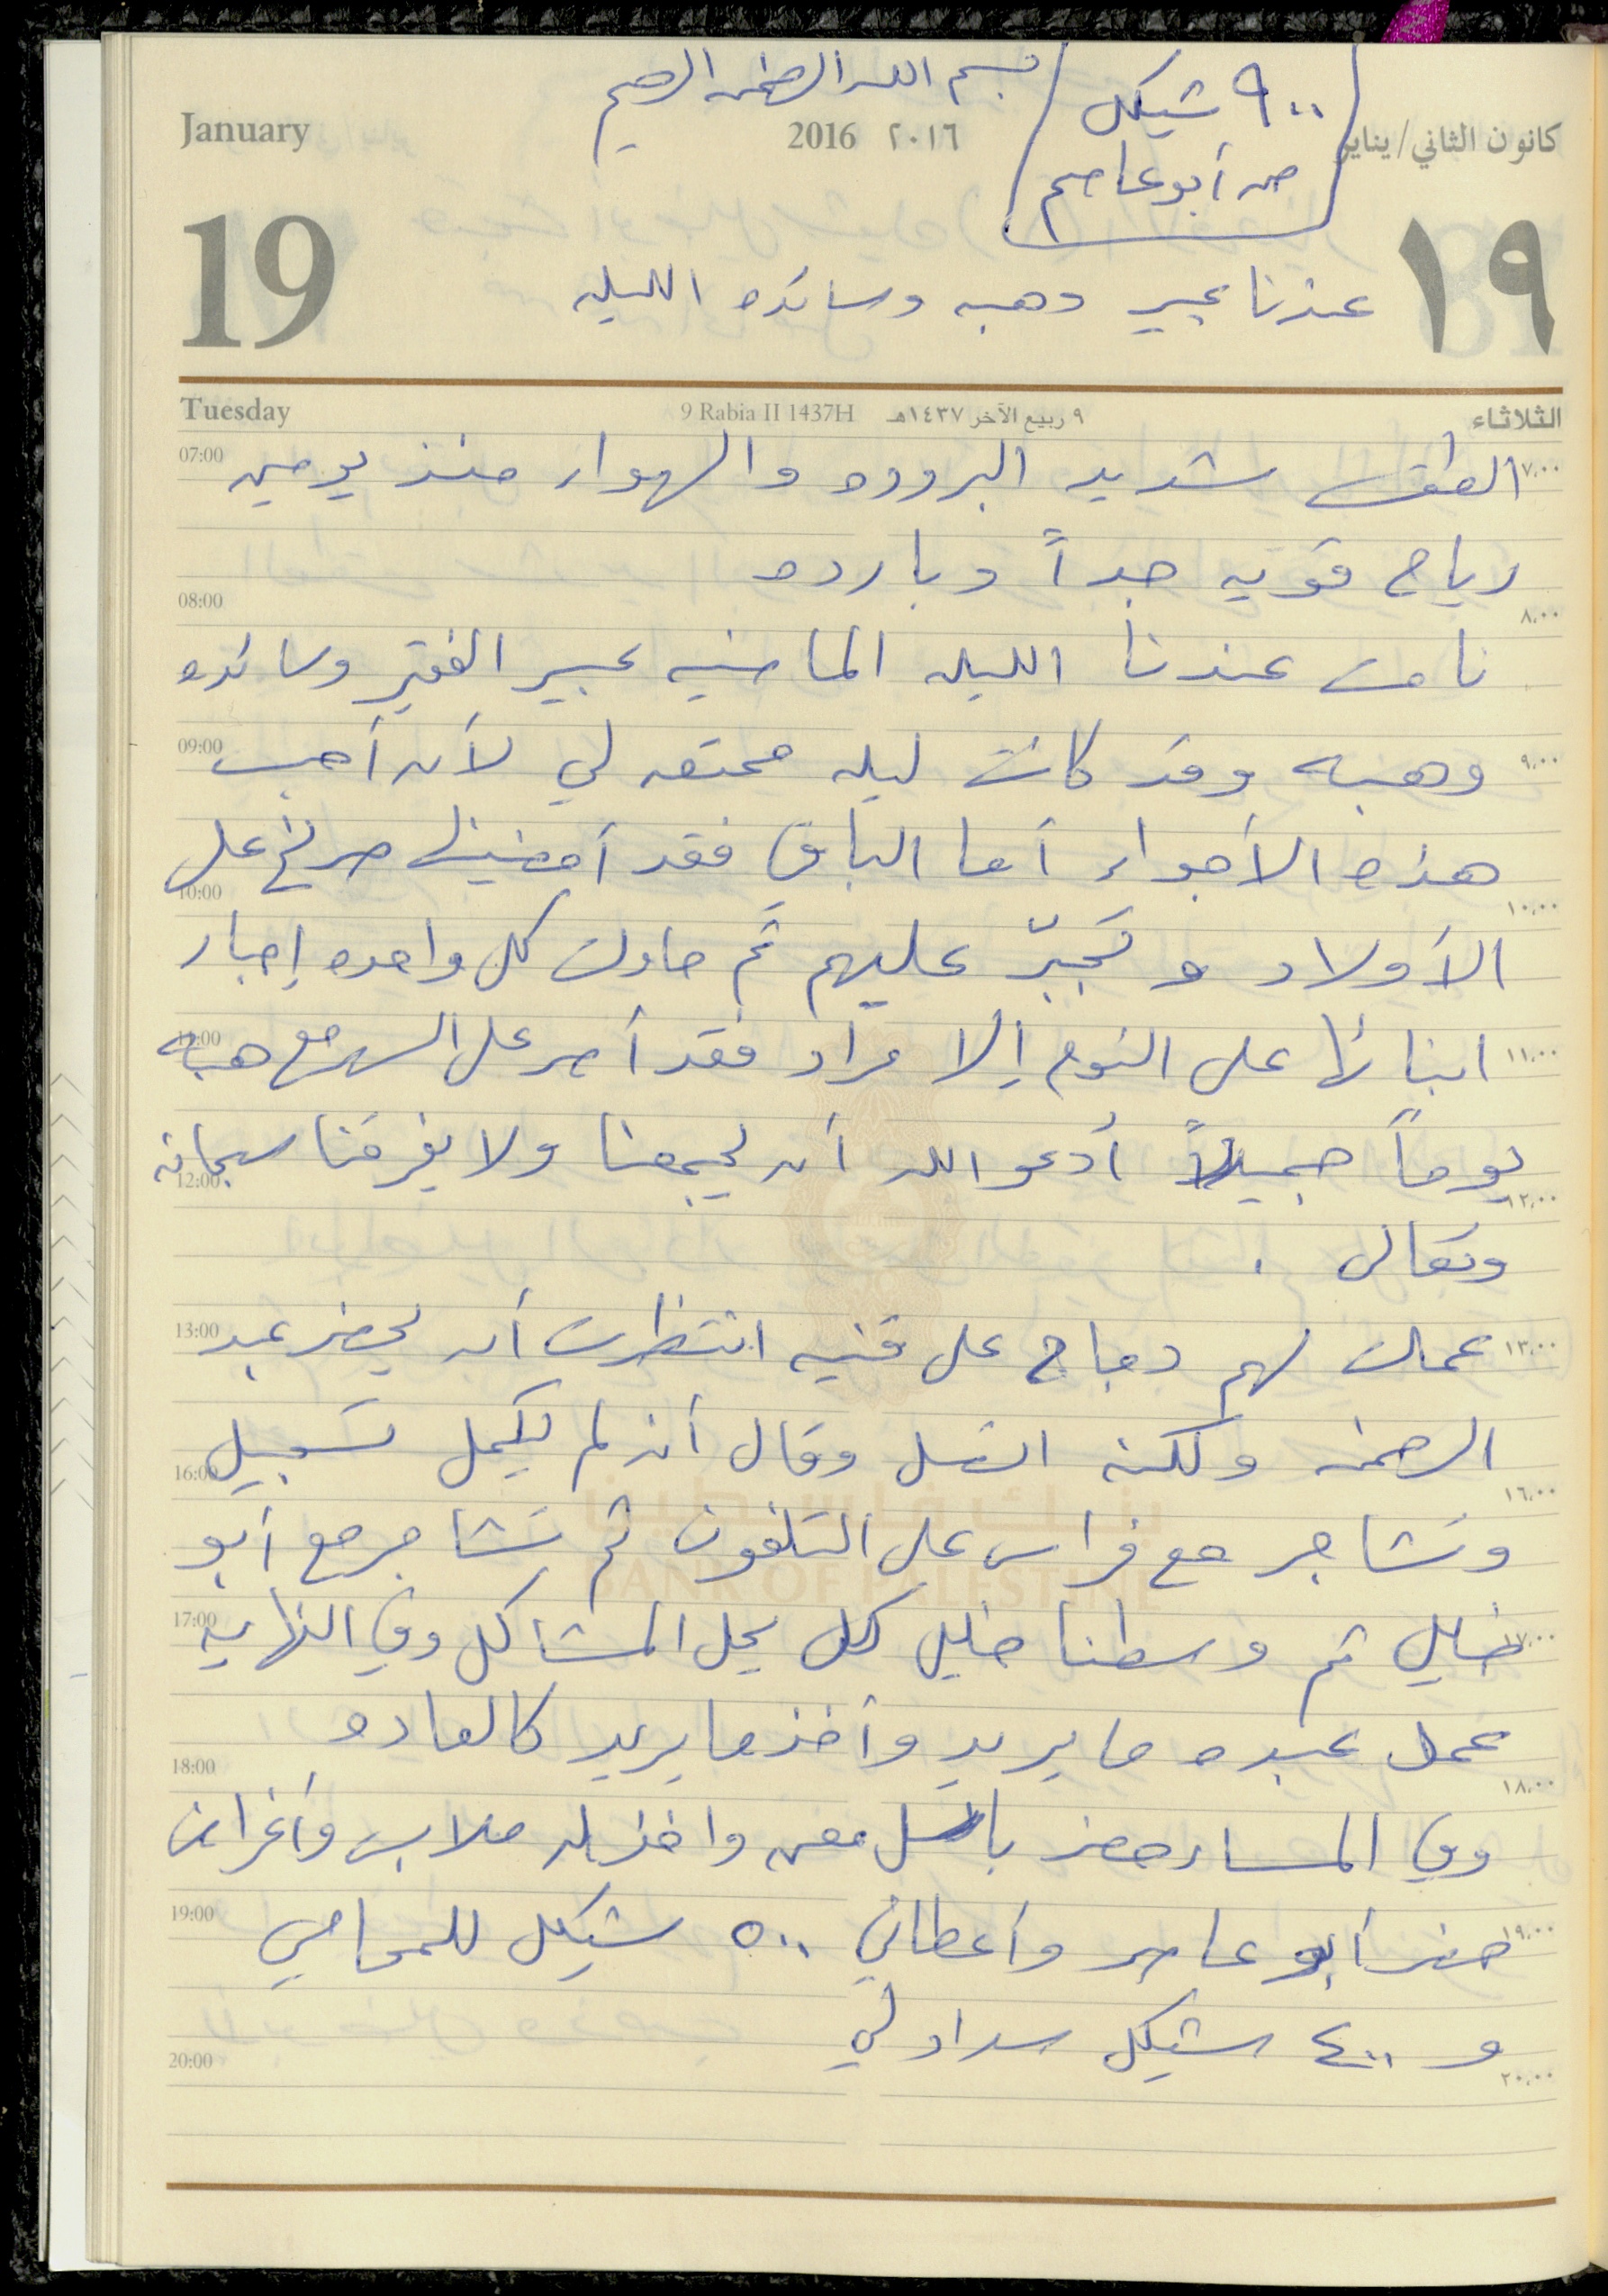 بسم الله الرحمن الرحيم
٩٠٠ شيكل
من أبو عاصم
January
2016 ٢٠١٦
كانون الثاني/يناير
19
١٩
عندنا عبير وهبه وسائده الليله
Tuesday
9 Rabia II 1437H ٩ ربيع الآخر ١٤٣٧هـ
الثلاثاء
07:00 ٧,٠٠
الطقس شديد البروده والهواء منذ يومين
رياح قويه جداً وبارده
08:00 ٨,٠٠
نامت عندنا الليله الماضيه عبير الفقير وسائده
09:00 ٩,٠٠
وهبه وقد كانت ليله ممتعه لي لأن أحب
هذه الأجواء أما الباقي فقد أمضينها صراخ على
10:00 ١٠,٠٠
الأولاد و تجبّر عليهم ثم حاولت كل واحده إجبار
11:00 ١١,٠٠
ابنائها على النوم إلا مراد فقد أصر على السهر مع هبه
يوماً جميلاً أدعو الله أن يجمعنا ولا يفرقنا سبحانه
12:00 ١٢,٠٠
وتعالى .
13:00 ١٣,٠٠
عملت لهم دجاج على قنيه انتظرت أن يحضر عبد
الرحمن ولكنه اتصل وقال أنه لم يكمل تسجيل
16:00 ١٦,٠٠
بنك فلسطين
BANK OF PALESTINE
وتشاجر مع فراس على التلفون ثم تشاجر مع أبو
17:00 ١٧,٠٠
خليل ثم وسطنا خليل لكل يحل المشاكل وفي النهايه
عمل عبده ما يريد وأخذ ما يريد كالعاده
18:00 ١٨,٠٠
وفي المساء حضر باسل معن واخذ له ملابس وأغراض
19:00 ١٩,٠٠
حضر أبو عاصم وأعطاني ٥٠٠ شيكل للمحامي
و ٤٠٠ شيكل سداد لي
20:00 ٢٠,٠٠